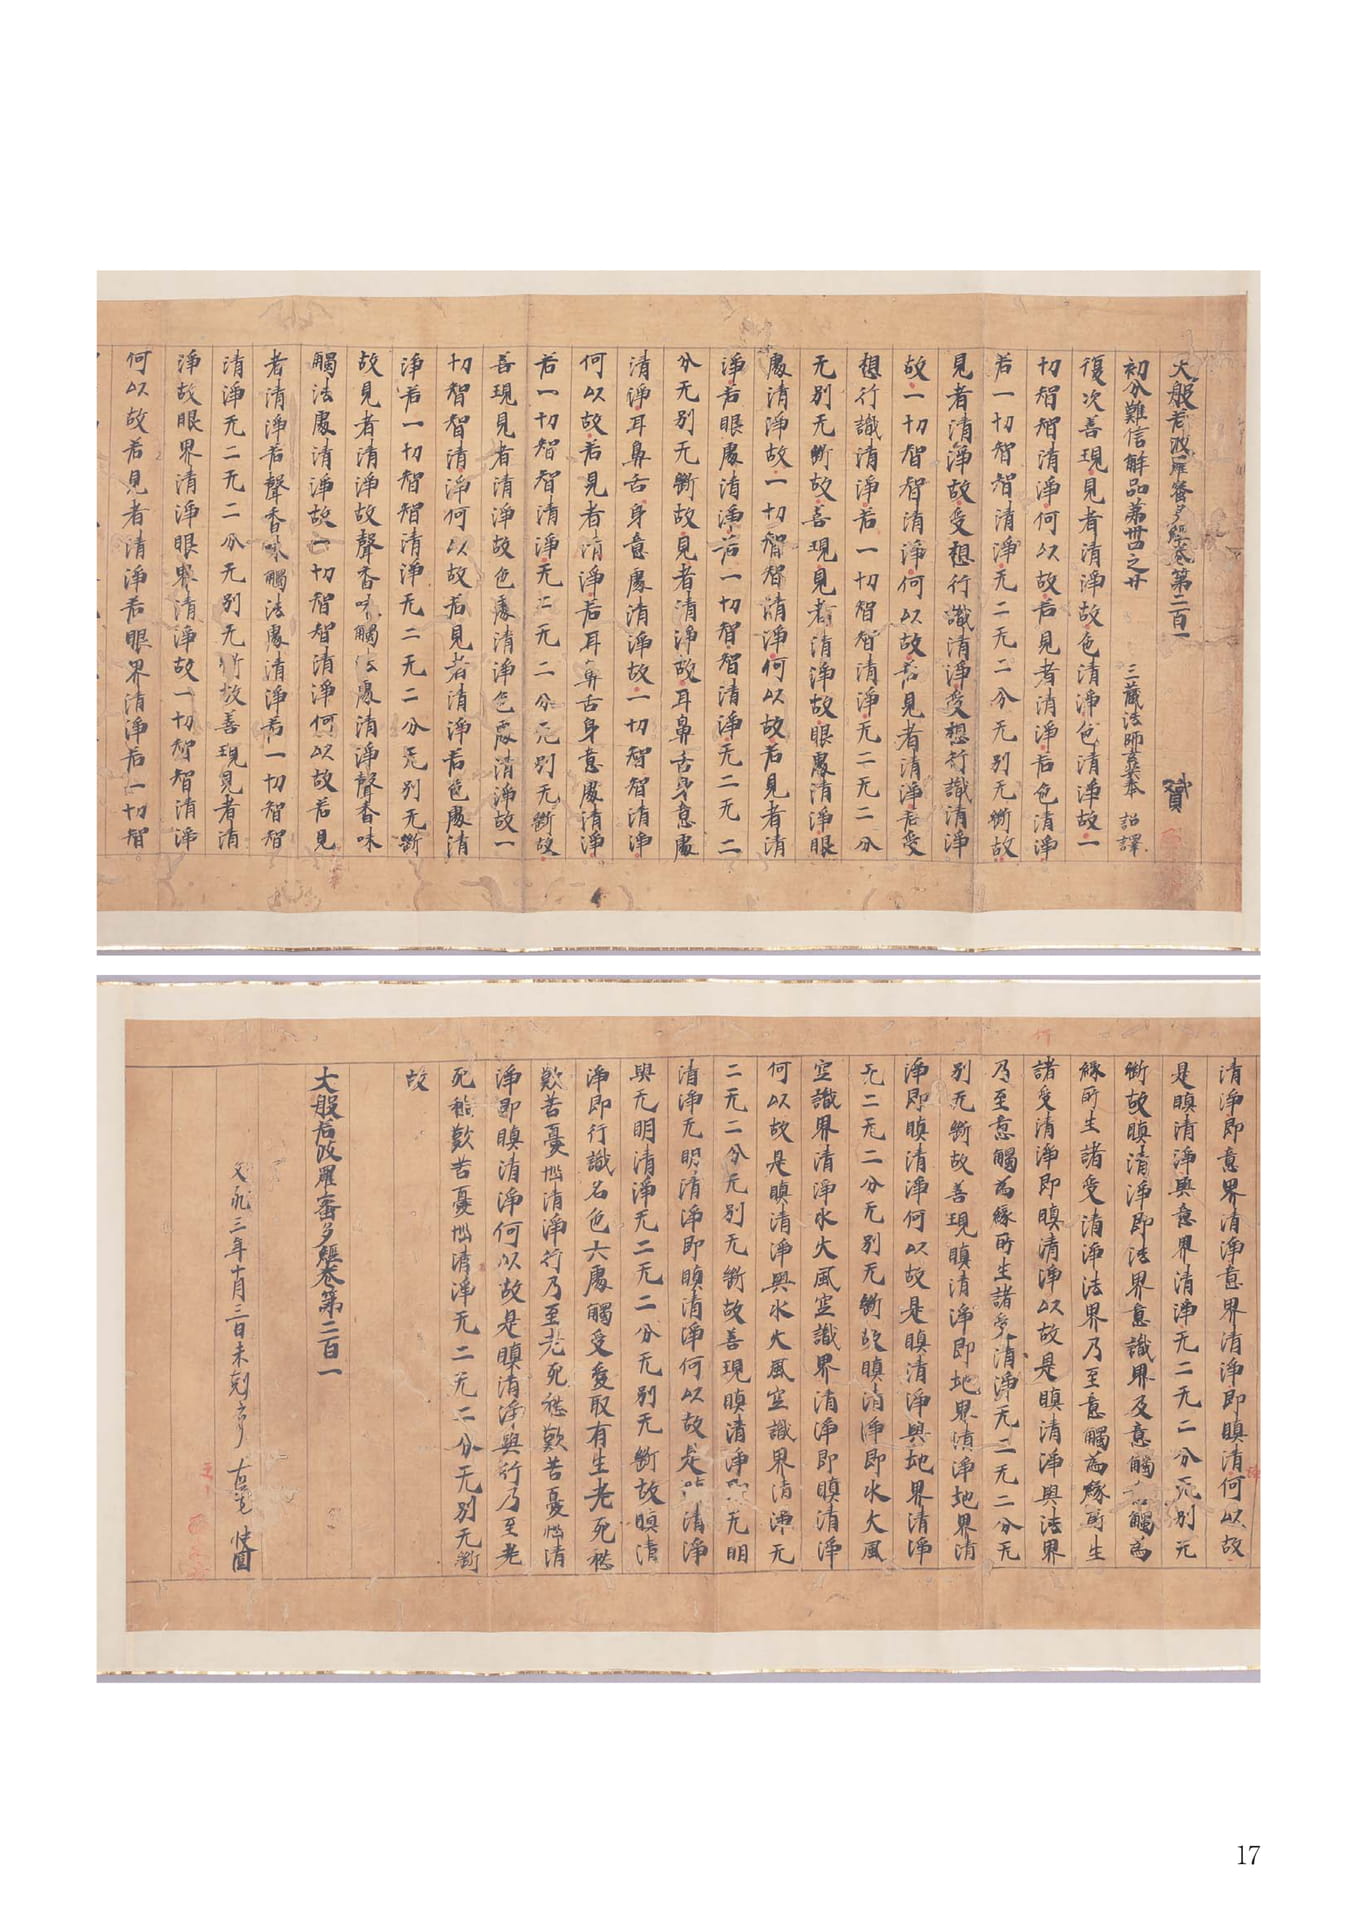 大般若波羅蜜多經卷第二百一
初分難信解品第卅四之廿 三藏法師玄奘奉 詔譯
復次善現見者清淨故色清淨色清淨故一
切智智清淨何以故若見者清淨若色清淨
若一切智智清淨无二无二分无別无斷故
見者清淨故受想行識清淨受想行識清淨
故一切智智清淨何以故若見者清淨若受
想行識清淨若一切智智清淨无二无二分
无別无斷故善現見者清淨故眼處清淨眼
處清淨故一切智智清淨何以故若見者清
淨若眼處清淨若一切智智清淨无二无二
分无別无斷故見者清淨故耳鼻舌身意處
清淨耳鼻舌身意處清淨故一切智智清淨
何以故若見者清淨若耳鼻舌身意處清淨
若一切智智清淨无二无二分无別无斷故
善現見者清淨故色處清淨色處清淨故一
切智智清淨何以故若見者清淨若色處清
淨若一切智智清淨无二无二分无別无斷
故見者清淨故聲香味觸法處清淨聲香味
觸法處清淨故一切智智清淨何以故若見
者清淨若聲香味觸法處清淨若一切智智
清淨无二无二分无別无斷故善現見者清
淨故眼界清淨眼界清淨故一切智智清淨
何以故若見者清淨若眼界清淨若一切智
清淨即意界清淨意界清淨即瞋清何以故
是瞋清淨與意界清淨无二无二分无別无
斷故瞋清淨即法界意識界及意觸意觸為
緣所生諸受清淨法界乃至意觸為緣所生
諸受清淨即瞋清淨以故是瞋清淨與法界
乃至意觸為緣所生諸受清淨无二无二分无
別无斷故善現瞋清淨即地界清淨地界清
淨即瞋清淨何以故是瞋清淨與地界清淨
无二无二分无別无斷故瞋清淨即水火風
空識界清淨水火風空識界清淨即瞋清淨
何以故是瞋清淨與水火風空識界清淨无
二无二分无別无斷故善現瞋清淨即无明
清淨无明清淨即瞋清淨何以故是瞋清淨
與无明清淨无二无二分无別无斷故瞋清
淨即行識名色六處觸受愛取有生老死愁
歎苦憂惱清淨行乃至老死愁歎苦憂惱清
淨即瞋清淨何以故是瞋清淨與行乃至老
死愁歎苦憂惱清淨无二无二分无別无斷
故
大般若波羅蜜多經卷第二百一
文永三年十月三日未剋
17